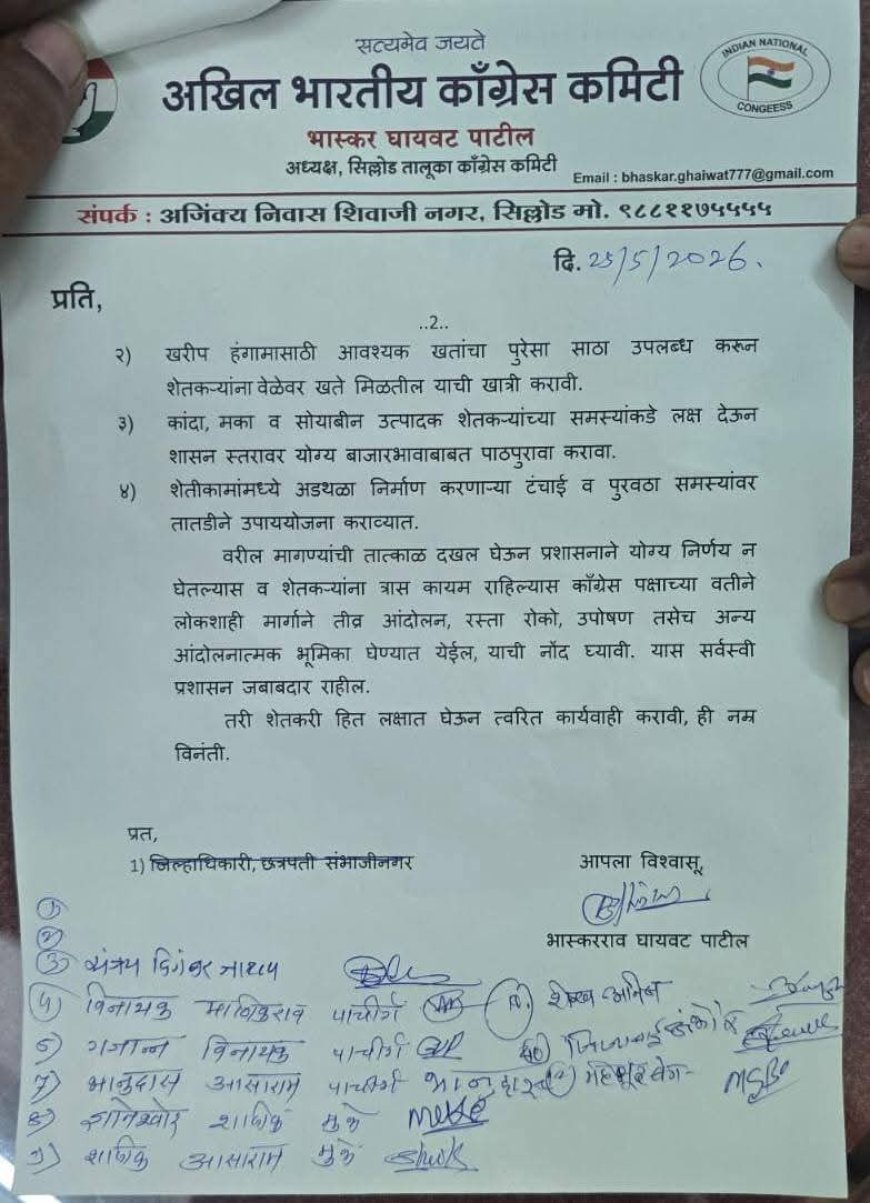 सत्यमेव जयते
अखिल भारतीय काँग्रेस कमिटी
INDIAN NATIONAL
CONGEESS
भास्कर घायवट पाटील
अध्यक्ष, सिल्लोड तालूका काँग्रेस कमिटी
Email : bhaskar.ghaiwat777@gmail.com
संपर्क : अजिंक्य निवास शिवाजी नगर, सिल्लोड मो. ९८८११७५५५५
दि. 25/5/2026.
प्रति,
..2..
२) खरीप हंगामासाठी आवश्यक खतांचा पुरेसा साठा उपलब्ध करून
शेतकऱ्यांना वेळेवर खते मिळतील याची खात्री करावी.
३) कांदा, मका व सोयाबीन उत्पादक शेतकऱ्यांच्या समस्यांकडे लक्ष देऊन
शासन स्तरावर योग्य बाजारभावाबाबत पाठपुरावा करावा.
४) शेतीकामांमध्ये अडथळा निर्माण करणाऱ्या टंचाई व पुरवठा समस्यांवर
तातडीने उपाययोजना कराव्यात.
वरील मागण्यांची तात्काळ दखल घेऊन प्रशासनाने योग्य निर्णय न
घेतल्यास व शेतकऱ्यांना त्रास कायम राहिल्यास काँग्रेस पक्षाच्या वतीने
लोकशाही मार्गाने तीव्र आंदोलन, रस्ता रोको, उपोषण तसेच अन्य
आंदोलनात्मक भूमिका घेण्यात येईल, याची नोंद घ्यावी. यास सर्वस्वी
प्रशासन जबाबदार राहील.
तरी शेतकरी हित लक्षात घेऊन त्वरित कार्यवाही करावी, ही नम्र
विनंती.
प्रत,
1) जिल्हाधिकारी, छत्रपती संभाजीनगर
आपला विश्वासू,
भास्करराव घायवट पाटील
विनायक माणिकराव पाचीर्ग
विनायक पाचीर्ग
भानुदास आसाराम पाचीर्ग
आसाराम
शेख